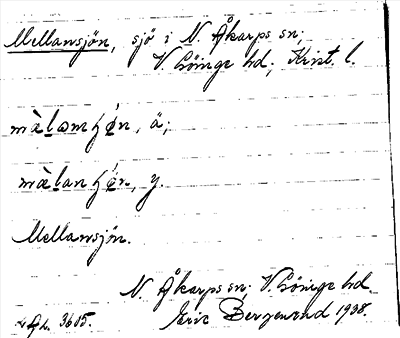 Mellansjön, sjö i N. Åkarps sn,
V. Göinge hd, Krist. l.
mὲlamɧø̀n, ä;
mὲlanɧø̀n, y.
Mellansjön.
N. Åkarps sn, V. Göinge hd
3605.
Eric Bergenrud 1938.